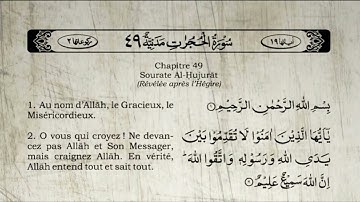 اٰیاتہا ١٩
سُوْرَةُ الْحُجُرَاتِ مَدَنِيَّةٌ ٤٩
رکوعاتہا ٢
Chapitre 49
Sourate Al-Ḥujurāt
(Révélée après l'Hégire)
1. Au nom d'Allāh, le Gracieux, le
Miséricordieux.
2. O vous qui croyez ! Ne devan-
cez pas Allāh et Son Messager,
mais craignez Allāh. En vérité,
Allāh entend tout et sait tout.
بِسْمِ اللّٰهِ الرَّحْمٰنِ الرَّحِيْمِ ۝١
يٰٓاَيُّهَا الَّذِيْنَ اٰمَنُوْا لَا تُقَدِّمُوْا بَيْنَ
يَدَيِ اللّٰهِ وَرَسُوْلِهٖ وَاتَّقُوا اللّٰهَ ؕ
اِنَّ اللّٰهَ سَمِيْعٌ عَلِيْمٌ ۝٢